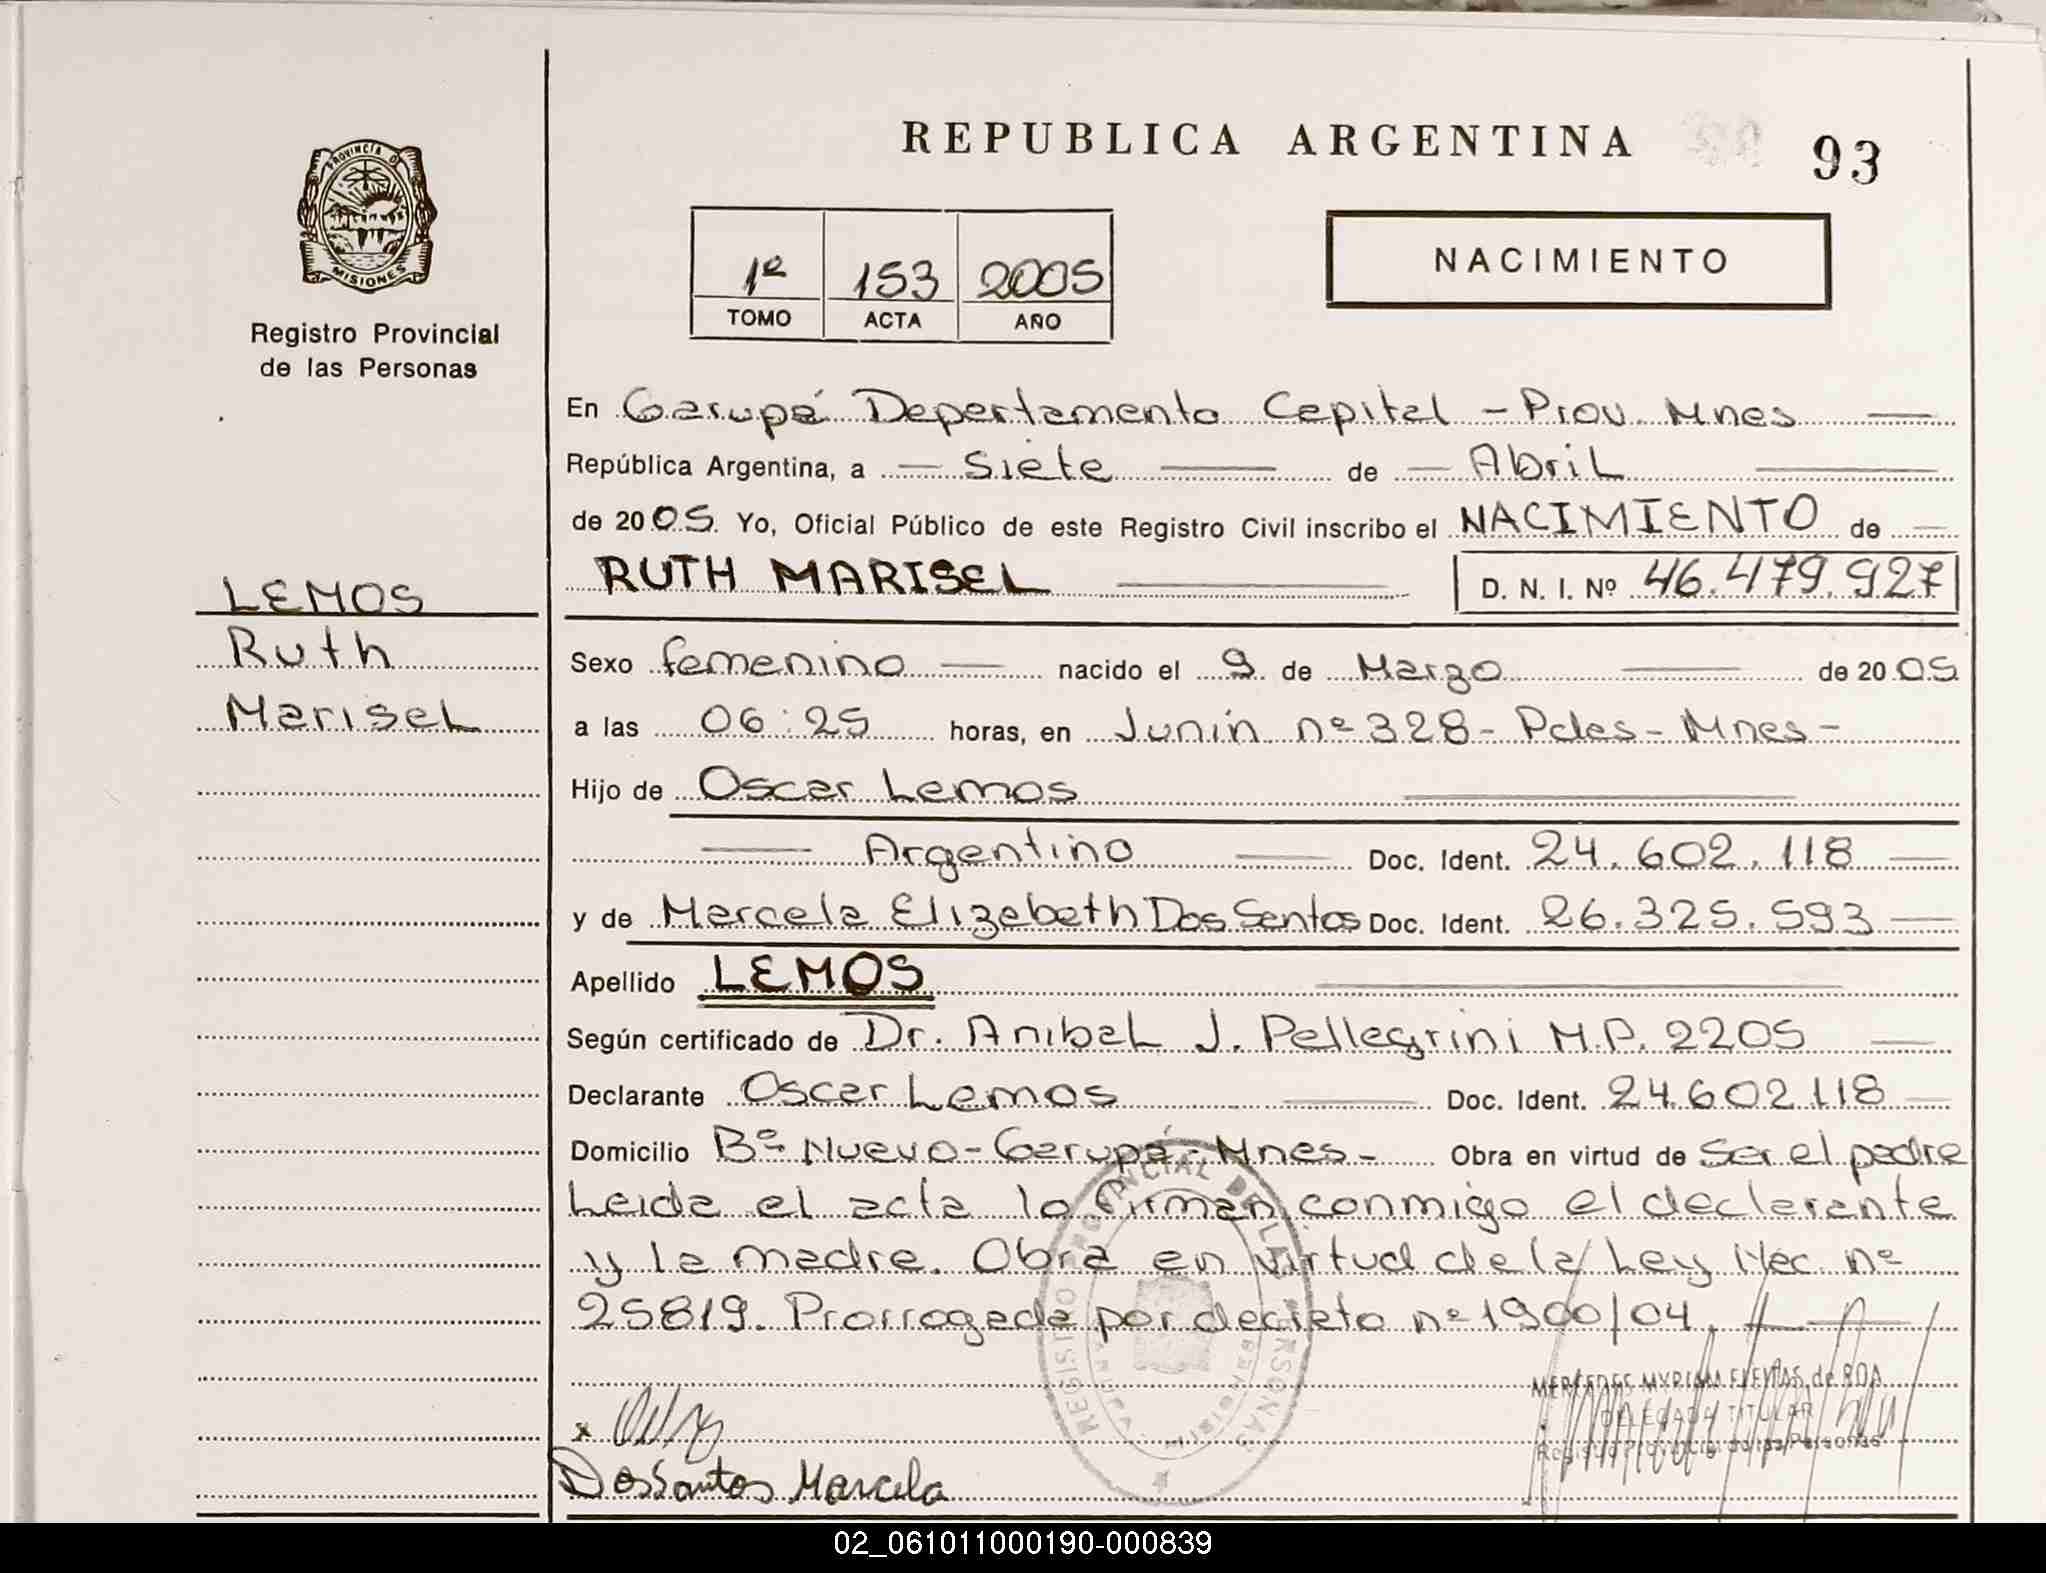 REPUBLICA ARGENTINA
93
PROVINCIA D
MISIONES
Registro Provincial
de las Personas
1º 153 2005
TOMO ACTA AÑO
NACIMIENTO
En Garupá Departamento Capital - Prov. Mnes
República Argentina, a Siete de Abril
de 2005. Yo, Oficial Público de este Registro Civil inscribo el NACIMIENTO de
RUTH MARISEL D. N. I. Nº 46.479.927
LEMOS
Ruth
Marisel
Sexo femenino nacido el 9 de Marzo de 2005
a las 06:25 horas, en Junín nº 328 - Pdas - Mnes -
Hijo de Oscar Lemos
Argentino Doc. Ident. 24.602.118
y de Marcela Elizabeth Dos Santos Doc. Ident. 26.325.593
Apellido LEMOS
Según certificado de Dr. Anibal J. Pellegrini M.P. 2205
Declarante Oscar Lemos Doc. Ident. 24.602.118
Domicilio Bº Nuevo - Garupá - Mnes - Obra en virtud de Ser el padre
Leida el acta la firman conmigo el declarante
y la madre. Obra en virtud de la Ley Nac. nº
25819. Prorrogada por decreto nº 1900/04.
REGISTRO PROVINCIAL DE LAS PERSONAS
MISIONES
MERCEDES MYRIAM FLEITAS de ROA
DELEGADA TITULAR
Registro Provincial de las Personas
x
Dos Santos Marcela
02_061011000190-000839